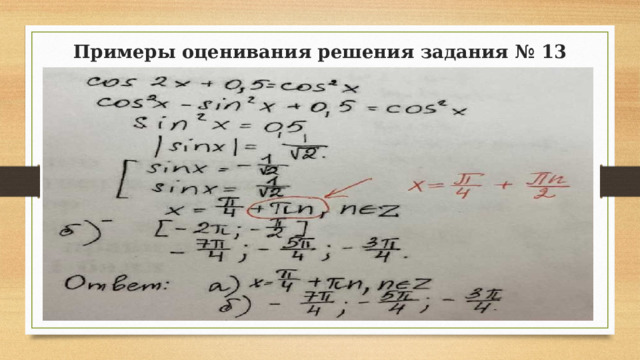 Примеры оценивания решения задания № 13
cos 2x + 0,5 = cos²x
cos²x - sin²x + 0,5 = cos²x
sin²x = 0,5
|sinx| = 1/√2.
[ sinx = - 1/√2
sinx = 1/√2
x = π/4 + πn, n∈Z
x = π/4 + πn/2
б) [-2π; -π/2]
- 7π/4; - 5π/4; - 3π/4.
Ответ: а) x = π/4 + πn, n∈Z
б) - 7π/4; - 5π/4; - 3π/4.